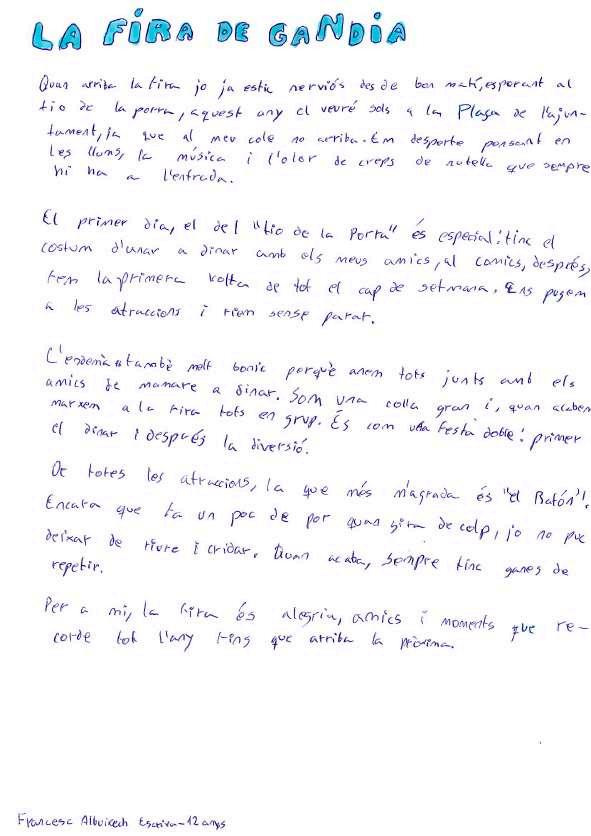 LA FIRA DE GANDIA
Quan arriba la fira jo ja estic nerviós des de bon matí, esperant al
tio de la porra, aquest any el veuré sols a la Plaça de l'ajun-
tament, ja que al meu cole no arriba. Em desperte pensant en
les llums, la música i l'olor de creps de nutella que sempre
hi ha a l'entrada.
El primer dia, el del "tio de la Porra" és especial: tinc el
costum d'anar a dinar amb els meus amics, al comics, després,
fem la primera volta de tot el cap de setmana. Ens pugem
a les atraccions i riem sense parar.
L'endemà també molt bonic perquè anem tots junts amb els
amics de mamare a dinar. Som una colla gran i, quan acabem
marxem a la fira tots en grup. És com una festa doble: primer
el dinar i després la diversió.
De totes les atraccions, la que més m'agrada és "el Ratón"!
Encara que fa un poc de por quan gira de colp, jo no puc
deixar de riure i cridar. Quan acaba, sempre tinc ganes de
repetir.
Per a mi, la fira és alegria, amics i moments que re-
corde tot l'any fins que arriba la pròxima.
Francesc Albuixech Escriva-12 anys